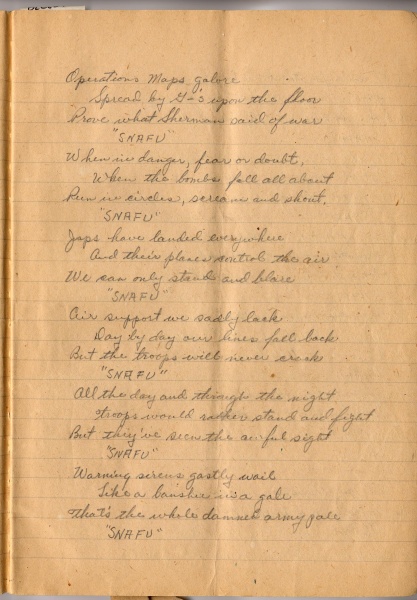 Operations Maps galore
Spread by G-3's upon the floor
Prove what Sherman said of war
"SNAFU"
When in danger, fear or doubt,
When the bombs fall all about
Run in circles, scream and shout.
"SNAFU"
Japs have landed everywhere
And their planes control the air
We can only stand and
"SNAFU"
Air support we sadly lack
Day by day our lines fall back
But the troops will never crack
"SNAFU"
All the day and through the night
Troops would rather stand and fight
But they've seen the awful sight
"SNAFU"
Warning sirens gastly wail
Like a banshee in a gale
That's the whole damned army
"SNAFU"